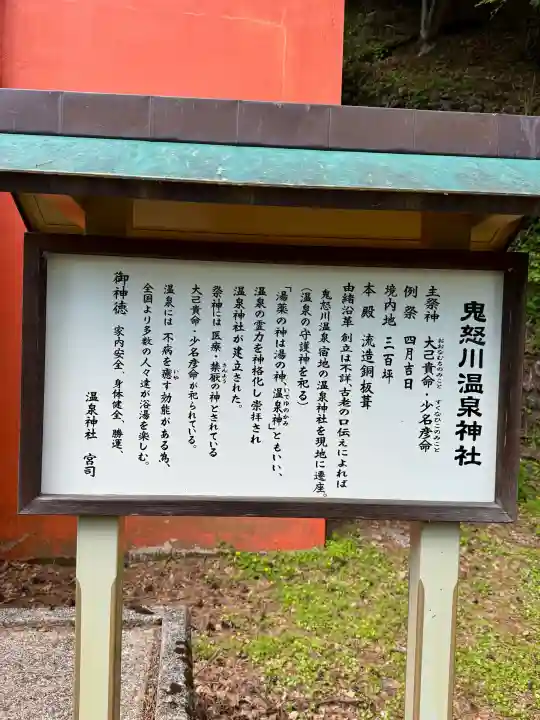 鬼怒川温泉神社
主祭神 大己貴命・少名彦命
おおなむちのみこと すくなひこのみこと
例祭 四月吉日
境内地 三百坪
本殿 流造銅板葺
由緒沿革 創立は不詳、古老の口伝えによれば
鬼怒川温泉 宿地の温泉神社を現地に遷座。
(温泉の守護神を祀る)
「湯薬の神は湯の神、温泉神」ともいい、
いでゆのかみ
温泉の霊力を神格化し崇拝され
温泉神社が建立された。
祭神には 医療・禁厭の神とされている
大己貴命・少名彦命が祀られている。
温泉には 不病を癒す効能がある為、
いや
全国より多数の人々達が浴湯を楽しむ。
御神徳 家内安全、身体健全、勝運、
温泉神社 宮司